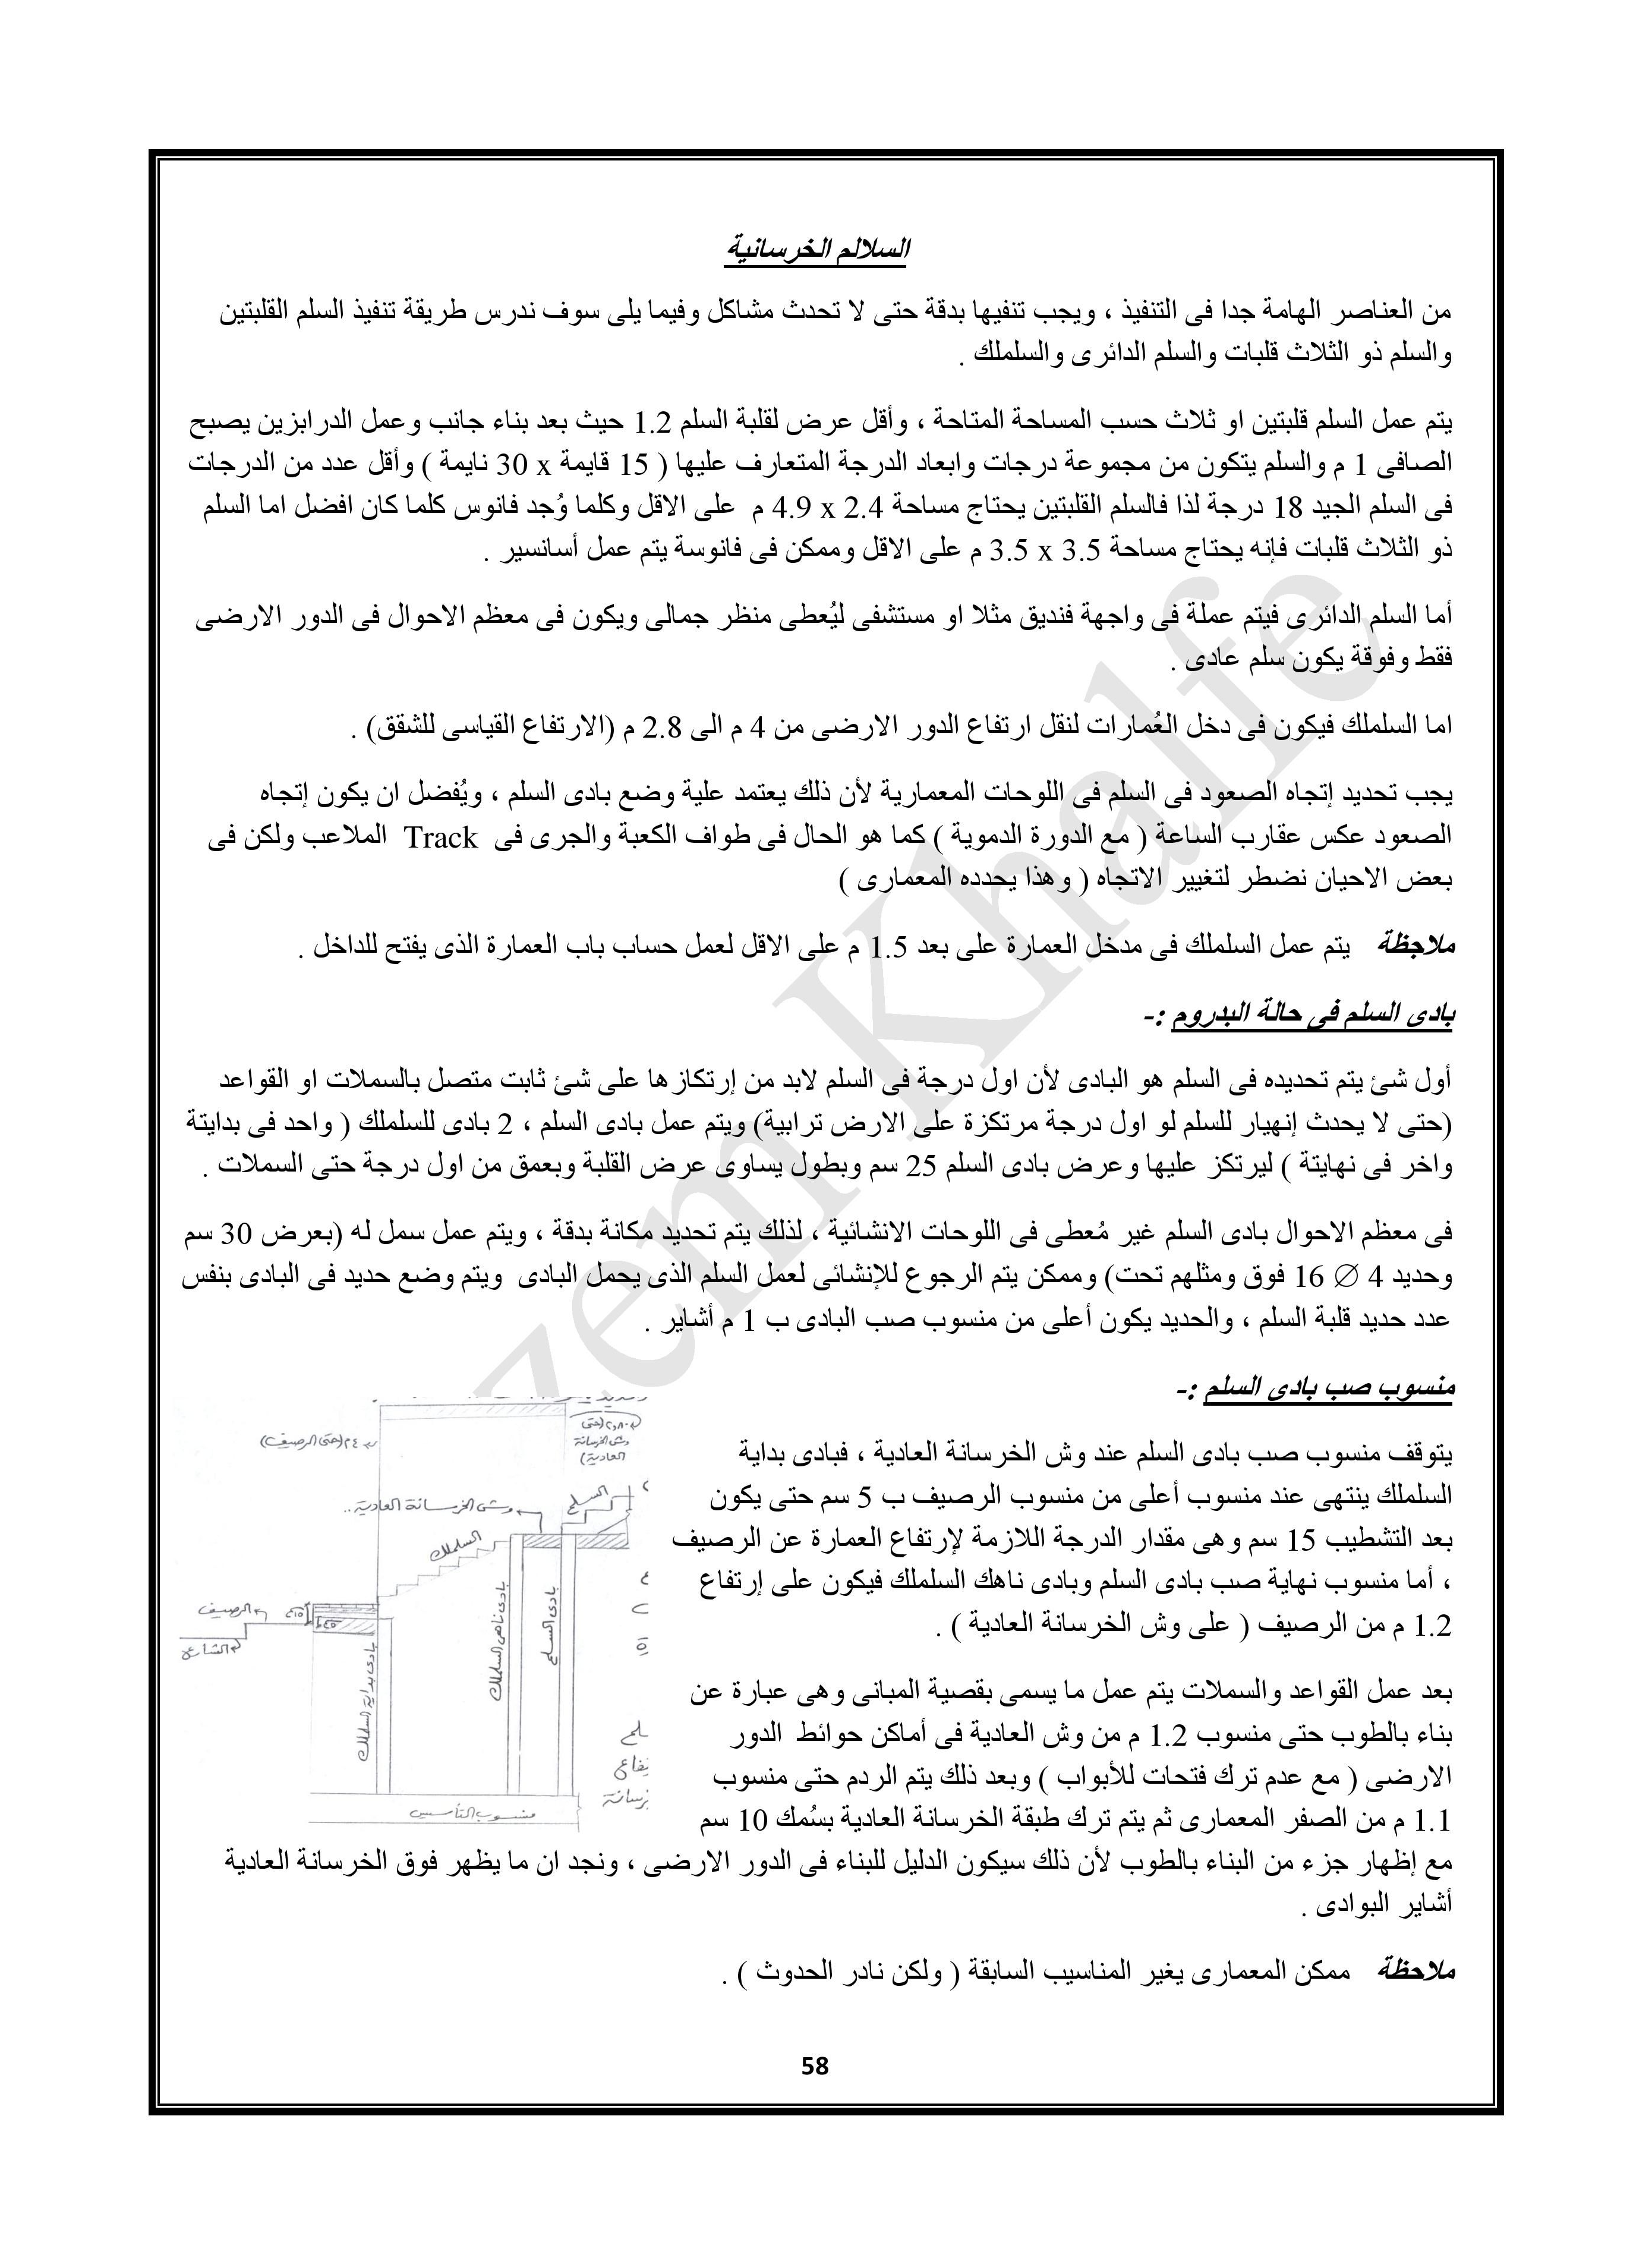 السلالم الخرسانية
من العناصر الهامة جدا فى التنفيذ ، ويجب تنفيها بدقة حتى لا تحدث مشاكل وفيما يلى سوف ندرس طريقة تنفيذ السلم القلبتين
والسلم ذو الثلاث قلبات والسلم الدائرى والسلملك .
يتم عمل السلم قلبتين او ثلاث حسب المساحة المتاحة ، وأقل عرض لقلبة السلم 1.2 حيث بعد بناء جانب وعمل الدرابزين يصبح
الصافى 1 م والسلم يتكون من مجموعة درجات وابعاد الدرجة المتعارف عليها ( 15 قايمة x 30 نايمة ) وأقل عدد من الدرجات
فى السلم الجيد 18 درجة لذا فالسلم القلبتين يحتاج مساحة 2.4 x 4.9 م على الاقل وكلما وُجد فانوس كلما كان افضل اما السلم
ذو الثلاث قلبات فإنه يحتاج مساحة 3.5 x 3.5 م على الاقل وممكن فى فانوسة يتم عمل أسانسير .
أما السلم الدائرى فيتم عملة فى واجهة فنديق مثلا او مستشفى ليُعطى منظر جمالى ويكون فى معظم الاحوال فى الدور الارضى
فقط وفوقة يكون سلم عادى .
اما السلملك فيكون فى دخل العُمارات لنقل ارتفاع الدور الارضى من 4 م الى 2.8 م (الارتفاع القياسى للشقق) .
يجب تحديد إتجاه الصعود فى السلم فى اللوحات المعمارية لأن ذلك يعتمد علية وضع بادى السلم ، ويُفضل ان يكون إتجاه
الصعود عكس عقارب الساعة ( مع الدورة الدموية ) كما هو الحال فى طواف الكعبة والجرى فى Track الملاعب ولكن فى
بعض الاحيان نضطر لتغيير الاتجاه ( وهذا يحدده المعمارى )
ملاجظة يتم عمل السلملك فى مدخل العمارة على بعد 1.5 م على الاقل لعمل حساب باب العمارة الذى يفتح للداخل .
بادى السلم فى حالة البدروم :-
أول شئ يتم تحديده فى السلم هو البادى لأن اول درجة فى السلم لابد من إرتكازها على شئ ثابت متصل بالسملات او القواعد
(حتى لا يحدث إنهيار للسلم لو اول درجة مرتكزة على الارض ترابية) ويتم عمل بادى السلم ، 2 بادى للسلملك ( واحد فى بدايتة
واخر فى نهايتة ) ليرتكز عليها وعرض بادى السلم 25 سم وبطول يساوى عرض القلبة وبعمق من اول درجة حتى السملات .
فى معظم الاحوال بادى السلم غير مُعطى فى اللوحات الانشائية ، لذلك يتم تحديد مكانة بدقة ، ويتم عمل سمل له (بعرض 30 سم
وحديد 4 ∅ 16 فوق ومثلهم تحت) وممكن يتم الرجوع للإنشائى لعمل السلم الذى يحمل البادى ويتم وضع حديد فى البادى بنفس
عدد حديد قلبة السلم ، والحديد يكون أعلى من منسوب صب البادى ب 1 م أشاير .
منسوب صب بادى السلم :-
يتوقف منسوب صب بادى السلم عند وش الخرسانة العادية ، فبادى بداية
السلملك ينتهى عند منسوب أعلى من منسوب الرصيف ب 5 سم حتى يكون
بعد التشطيب 15 سم وهى مقدار الدرجة اللازمة لإرتفاع العمارة عن الرصيف
، أما منسوب نهاية صب بادى السلم وبادى ناهك السلملك فيكون على إرتفاع
1.2 م من الرصيف ( على وش الخرسانة العادية ) .
بعد عمل القواعد والسملات يتم عمل ما يسمى بقصية المبانى وهى عبارة عن
بناء بالطوب حتى منسوب 1.2 م من وش العادية فى أماكن حوائط الدور
الارضى ( مع عدم ترك فتحات للأبواب ) وبعد ذلك يتم الردم حتى منسوب
1.1 م من الصفر المعمارى ثم يتم ترك طبقة الخرسانة العادية بسُمك 10 سم
مع إظهار جزء من البناء بالطوب لأن ذلك سيكون الدليل للبناء فى الدور الارضى ، ونجد ان ما يظهر فوق الخرسانة العادية
أشاير البوادى .
ملاحظة ممكن المعمارى يغير المناسيب السابقة ( ولكن نادر الحدوث ) .
(حتى الرصيف)
٢٫٨٠ (حتى
وش الخرسانة
العادية)
وش الخرسانة العادية
السلم
السلملك
الرصيف
الشارع
بادى بداية السلملك
بادى ناهى السلملك
بادى السلم
منسوب التأسيس
58
zem Khalfe